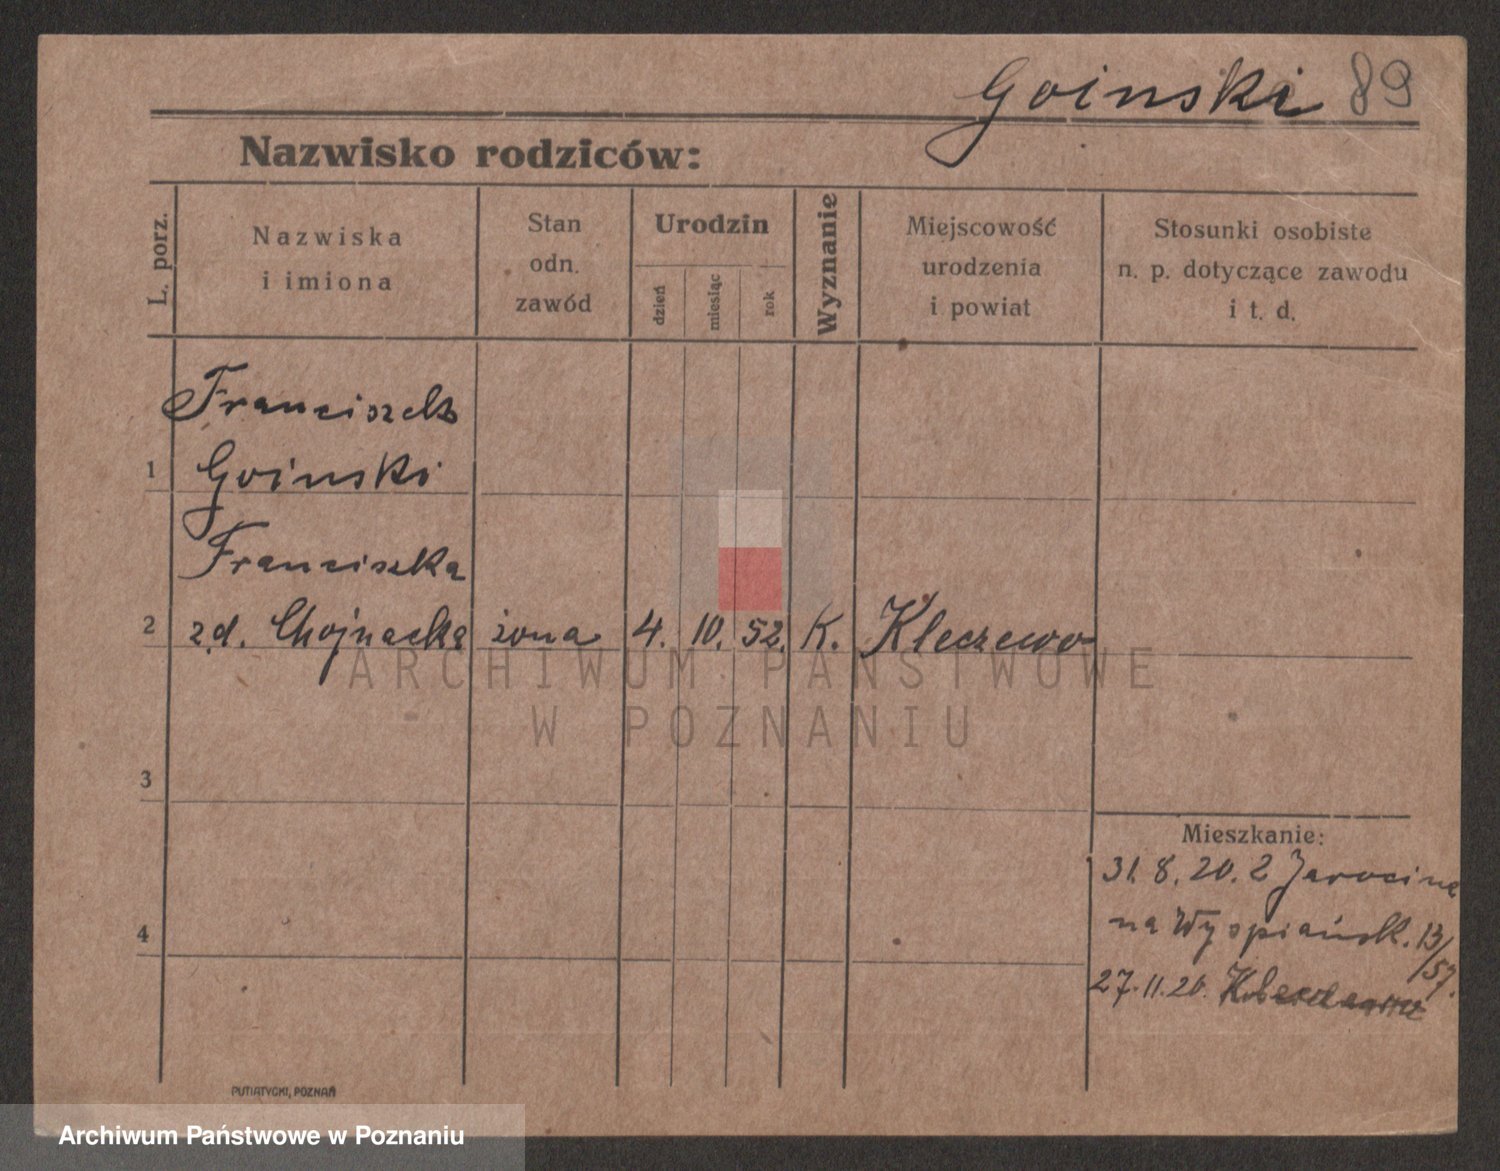 Goinski 89
Nazwisko rodziców:
L. porz.
Nazwiska
i imiona
Stan
odn.
zawód
Urodzin
dzień
miesiąc
rok
Wyznanie
Miejscowość
urodzenia
i powiat
Stosunki osobiste
n. p. dotyczące zawodu
i t. d.
Franciszek
1 Goinski
Franciszka
2 z d. Chojnacka żona 4. 10. 52. K. Kleczewo
3
4
Mieszkanie:
31. 8. 20. z Jarocina
na Wyspiańsk. 13/
57.
27. 11. 20.
PUTIATYCKI, POZNAŃ
ARCHIWUM PAŃSTWOWE
W POZNANIU
Archiwum Państwowe w Poznaniu